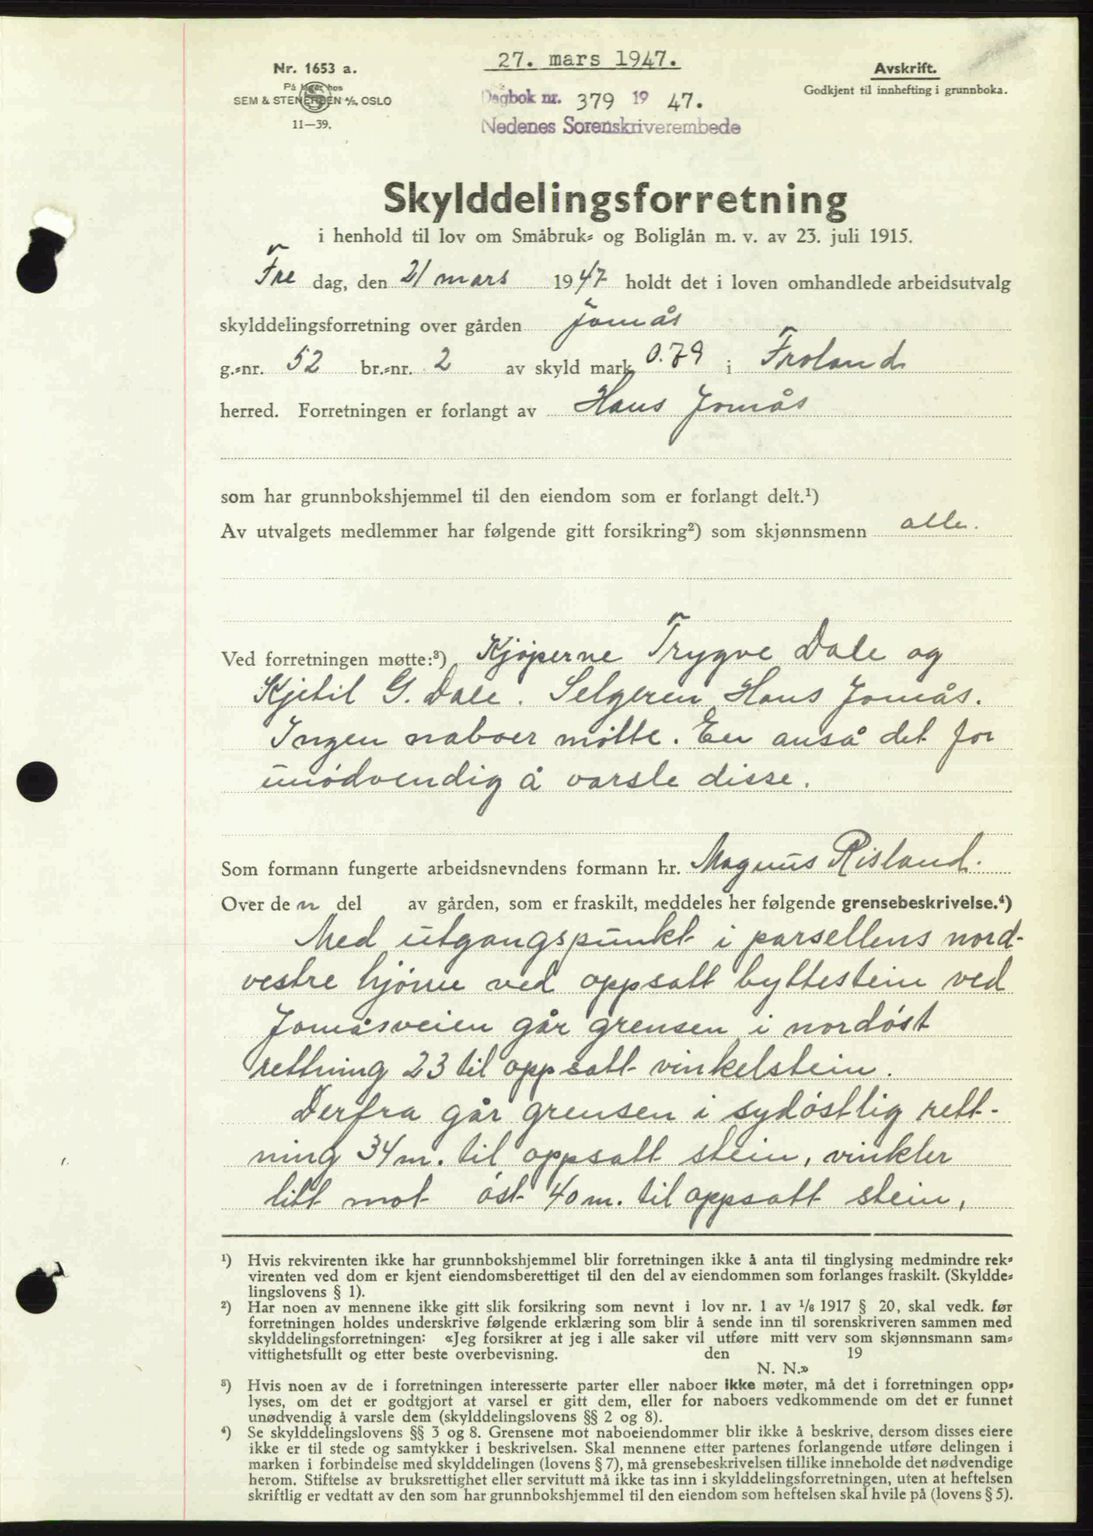 27. mars 1947.
Nr. 1653 a.
På lager hos
SEM & STENERSEN A/S, OSLO
11—39.
Dagbok nr. 379 1947.
Nedenes Sorenskriverembede
Avskrift.
Godkjent til innhefting i grunnboka.
Skylddelingsforretning
i henhold til lov om Småbruk- og Boliglån m. v. av 23. juli 1915.
Fre dag, den 21 mars 1947 holdt det i loven omhandlede arbeidsutvalg
skylddelingsforretning over gården Jomås
g.-nr. 52 br.-nr. 2 av skyld mark 0.79 i Froland
herred. Forretningen er forlangt av Hans Jomås
som har grunnbokshjemmel til den eiendom som er forlangt delt.¹)
Av utvalgets medlemmer har følgende gitt forsikring²) som skjønnsmenn alle.
Ved forretningen møtte:³) Kjøperne Trygve Dale og
Kjetil G. Dale. Selgeren Hans Jomås.
Ingen naboer møtte. En anså det for
unødvendig å varsle disse.
Som formann fungerte arbeidsnevndens formann hr. Magnus Risland.
Over den del av gården, som er fraskilt, meddeles her følgende grensebeskrivelse.⁴)
Med utgangspunkt i parsellens nord-
vestre hjørne ved oppsatt byttestein ved
Jomåsveien går grensen i nordøst
rettning 23 til oppsatt vinkelstein.
Derfra går grensen i sydøstlig rett-
ning 34 m. til oppsatt stein, vinkler
litt mot øst 40 m. til oppsatt stein,
¹) Hvis rekvirenten ikke har grunnbokshjemmel blir forretningen ikke å anta til tinglysing medmindre rek-
virenten ved dom er kjent eiendomsberettiget til den del av eiendommen som forlanges fraskilt. (Skyldde-
lingslovens § 1).
²) Har noen av mennene ikke gitt slik forsikring som nevnt i lov nr. 1 av ¹/₆ 1917 § 20, skal vedk. før
forretningen holdes underskrive følgende erklæring som blir å sende inn til sorenskriveren sammen med
skylddelingsforretningen: «Jeg forsikrer at jeg i alle saker vil utføre mitt verv som skjønnsmann sam-
vittighetsfullt og etter beste overbevisning. den 19
N. N.»
³) Hvis noen av de i forretningen interesserte parter eller naboer ikke møter, må det i forretningen opp-
lyses, om det er godtgjort at varsel er gitt dem, eller for naboers vedkommende om det er funnet
unødvendig å varsle dem (skylddelingslovens §§ 2 og 8).
⁴) Se skylddelingslovens §§ 3 og 8. Grensene mot naboeiendommer blir ikke å beskrive, dersom disses eiere
ikke er til stede og samtykker i beskrivelsen. Skal mennene etter partenes forlangende utføre delingen i
marken i forbindelse med skylddelingen (lovens § 7), må grensebeskrivelsen tillike inneholde det nødvendige
herom. Stiftelse av bruksrettighet eller servitutt må ikke tas inn i skylddelingsforretningen, uten at heftelsen
skriftlig er vedtatt av den som har grunnbokshjemmel til den eiendom som heftelsen skal hvile på (lovens § 5).